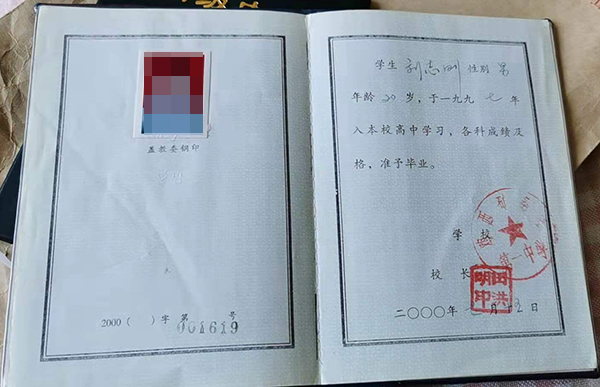 盖教委钢印
2000 （ ）字 第 号
001619
学生 刘志刚 性别 男
年龄 20 岁，于一九九 七 年
入本校高中学习，各科成绩及
格，准予毕业。
学 校
第一中学
校 长
田洪
明印
二〇〇〇年 月 日